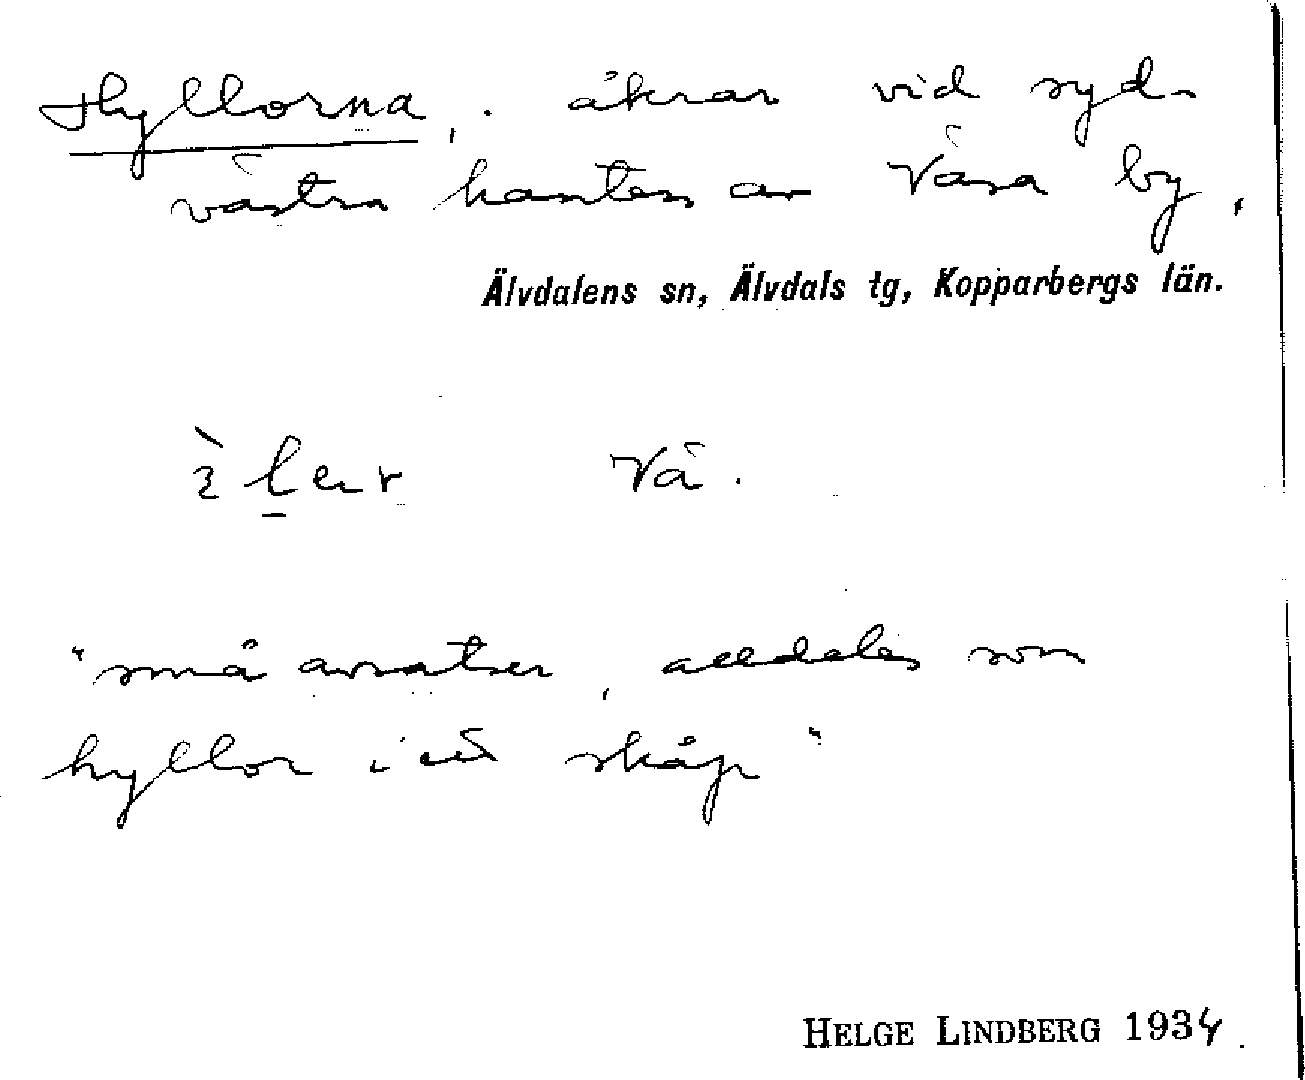 Hyllorna, åkrar vid syd-
västra kanten av Väsa by,
Älvdalens sn, Älvdals tg, Kopparbergs län.
Vä.
"små avsatser, alldeles som
hyllor i ett skåp"
HELGE LINDBERG 1934.